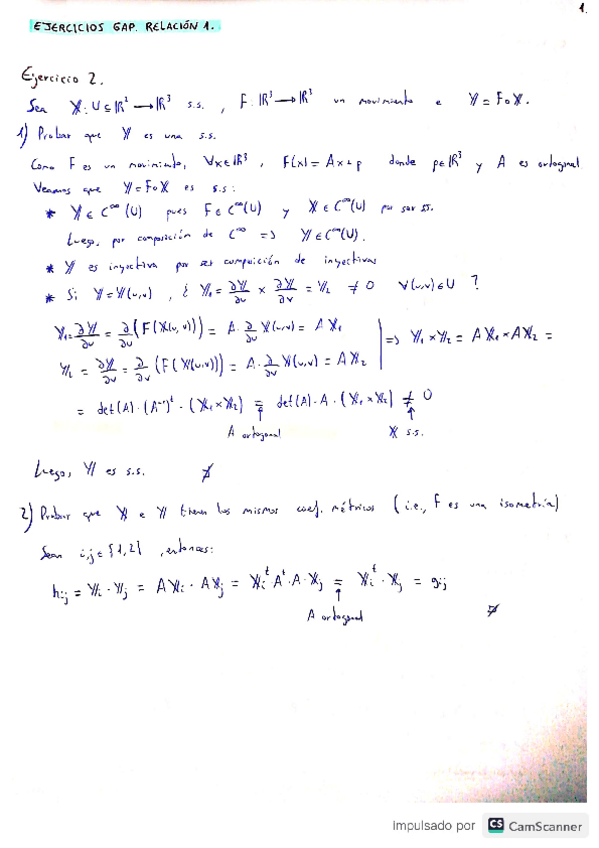 1.
EJERCICIOS GAP. RELACIÓN 1.
Ejercicio 2.
Sea 𝕏: U ⊆ ℝ² → ℝ³ s.s. , F: ℝ³ → ℝ³ un movimiento e 𝕐 = F∘𝕏.
1) Probar que 𝕐 es una s.s.
Como F es un movimiento, ∀x∈ℝ³, F(x) = Ax+p donde p∈ℝ³ y A es ortogonal
Veamos que 𝕐 = F∘𝕏 es s.s:
* 𝕐 ∈ C^∞(U) pues F ∈ C^∞(U) y 𝕏 ∈ C^∞(U) por ser ss.
Luego, por composición de C^∞ => 𝕐 ∈ C^∞(U).
* 𝕐 es inyectiva por ser composición de inyectivas
* Si 𝕐 = 𝕐(u,v) , ¿ 𝕐₁ = ∂𝕐/∂u × ∂𝕐/∂v = 𝕐₂ ≠ 0 ∀(u,v)∈U ?
𝕐₁ = ∂𝕐/∂u = ∂/∂u (F(𝕏(u,v))) = A · ∂/∂u 𝕏(u,v) = A𝕏₁
𝕐₂ = ∂𝕐/∂v = ∂/∂v (F(𝕏(u,v))) = A · ∂/∂v 𝕏(u,v) = A𝕏₂
=> 𝕐₁ × 𝕐₂ = A𝕏₁ × A𝕏₂ =
= det(A) · (A⁻¹)ᵗ · (𝕏₁ × 𝕏₂) = det(A) · A · (𝕏₁ × 𝕏₂) ≠ 0
A ortogonal 𝕏 s.s.
Luego, 𝕐 es s.s.
2) Probar que 𝕏 e 𝕐 tienen los mismos coef. métricos (i.e., F es una isometría)
Sean i,j ∈ {1,2} , entonces:
h_ij = 𝕐i · 𝕐j = A𝕏i · A𝕏j = 𝕏iᵗ Aᵗ · A · 𝕏j = 𝕏iᵗ · 𝕏j = g_ij
A ortogonal
Impulsado por CS CamScanner